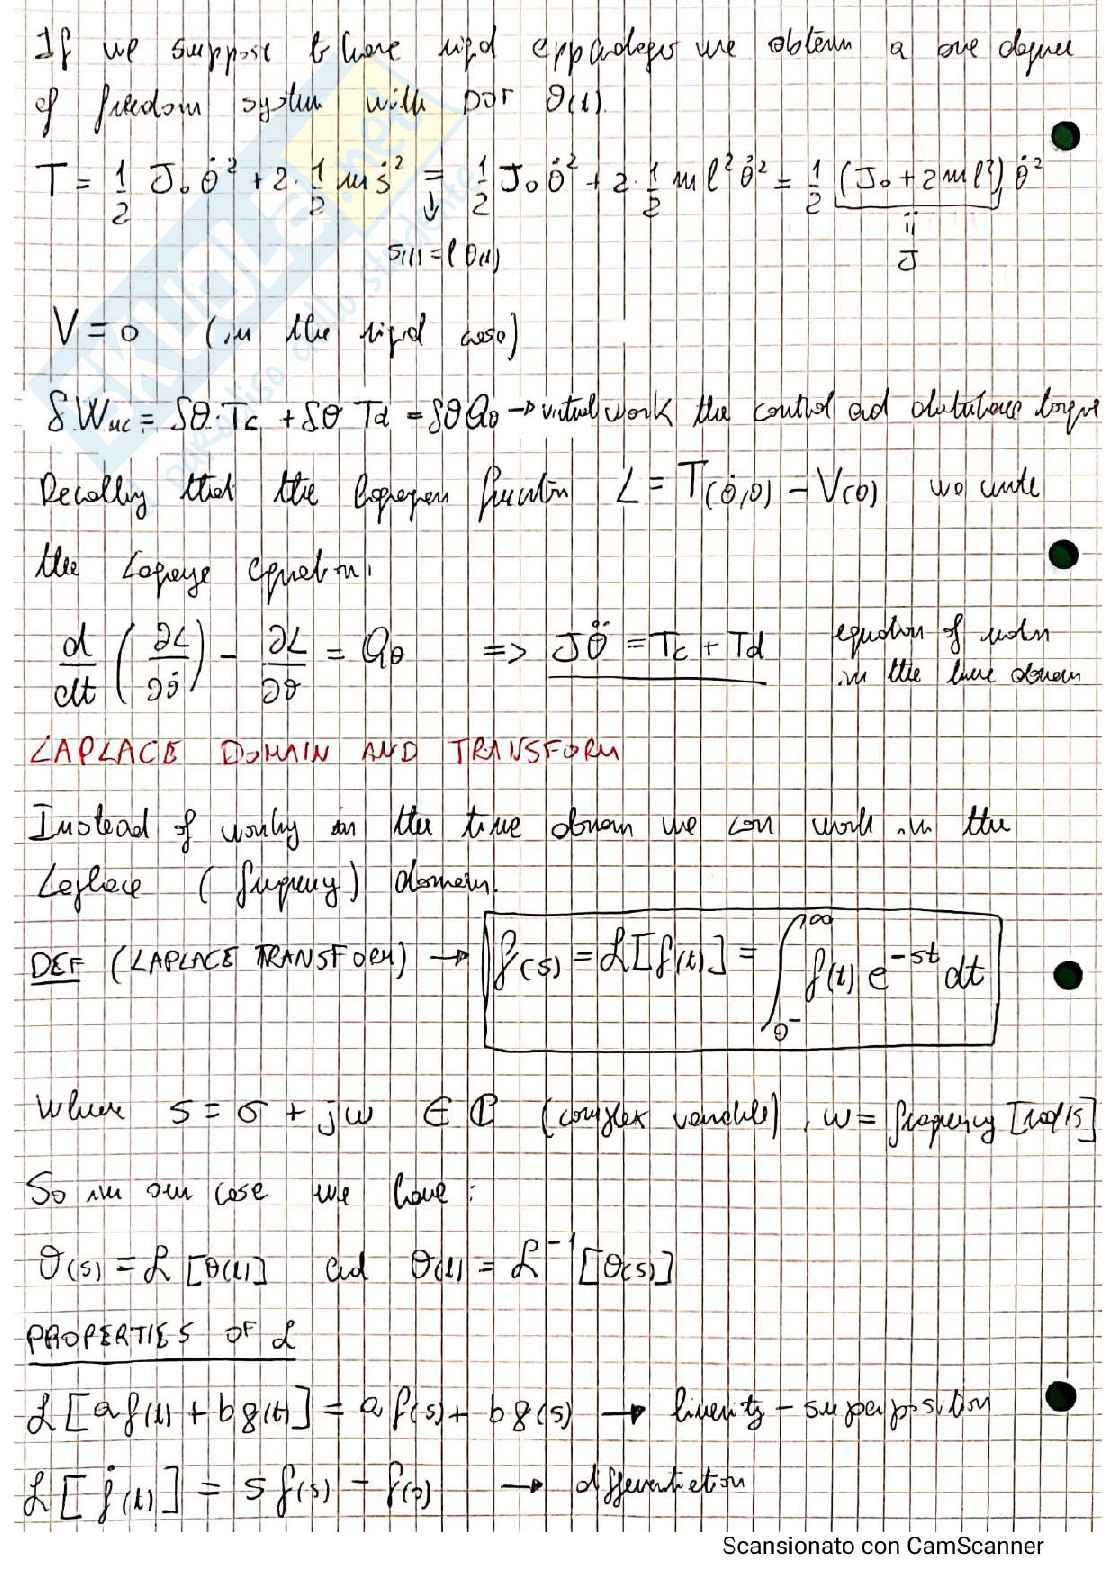 If we suppose to have rigid appendages we obtain a one degree
of freedom system with DOF θ(t).
T = 1/2 J₀ θ̇² + 2 · 1/2 m ṡ² = 1/2 J₀ θ̇² + 2 · 1/2 m l² θ̇² = 1/2 (J₀ + 2ml²) θ̇²
s(t) = l θ(t)
J
V = 0 (in the rigid case)
δWnc = δθ · Tc + δθ Td = δθ Qθ → virtual work the control ad disturbance torque
Recalling that the Lagrangian function L = T(θ̇,θ) − V(θ) we write
the Lagrange equation:
d/dt (∂L/∂θ̇) − ∂L/∂θ = Qθ => Jθ̈ = Tc + Td equation of motion
in the time domain
LAPLACE DOMAIN AND TRANSFORM
Instead of working in the time domain we can work in the
Laplace (frequency) domain.
DEF (LAPLACE TRANSFORM) → f(s) = ℒ[f(t)] = ∫₀⁻^∞ f(t) e^−st dt
Where s = σ + jω ∈ ℂ (complex variable), ω = frequency [rad/s]
So in our case we have:
θ(s) = ℒ[θ(t)] ad θ(t) = ℒ⁻¹[θ(s)]
PROPERTIES OF ℒ
ℒ[a f(t) + b g(t)] = a f(s) + b g(s) → linearity - superposition
ℒ[ḟ(t)] = s f(s) − f(0) → differentiation
Scansionato con CamScanner